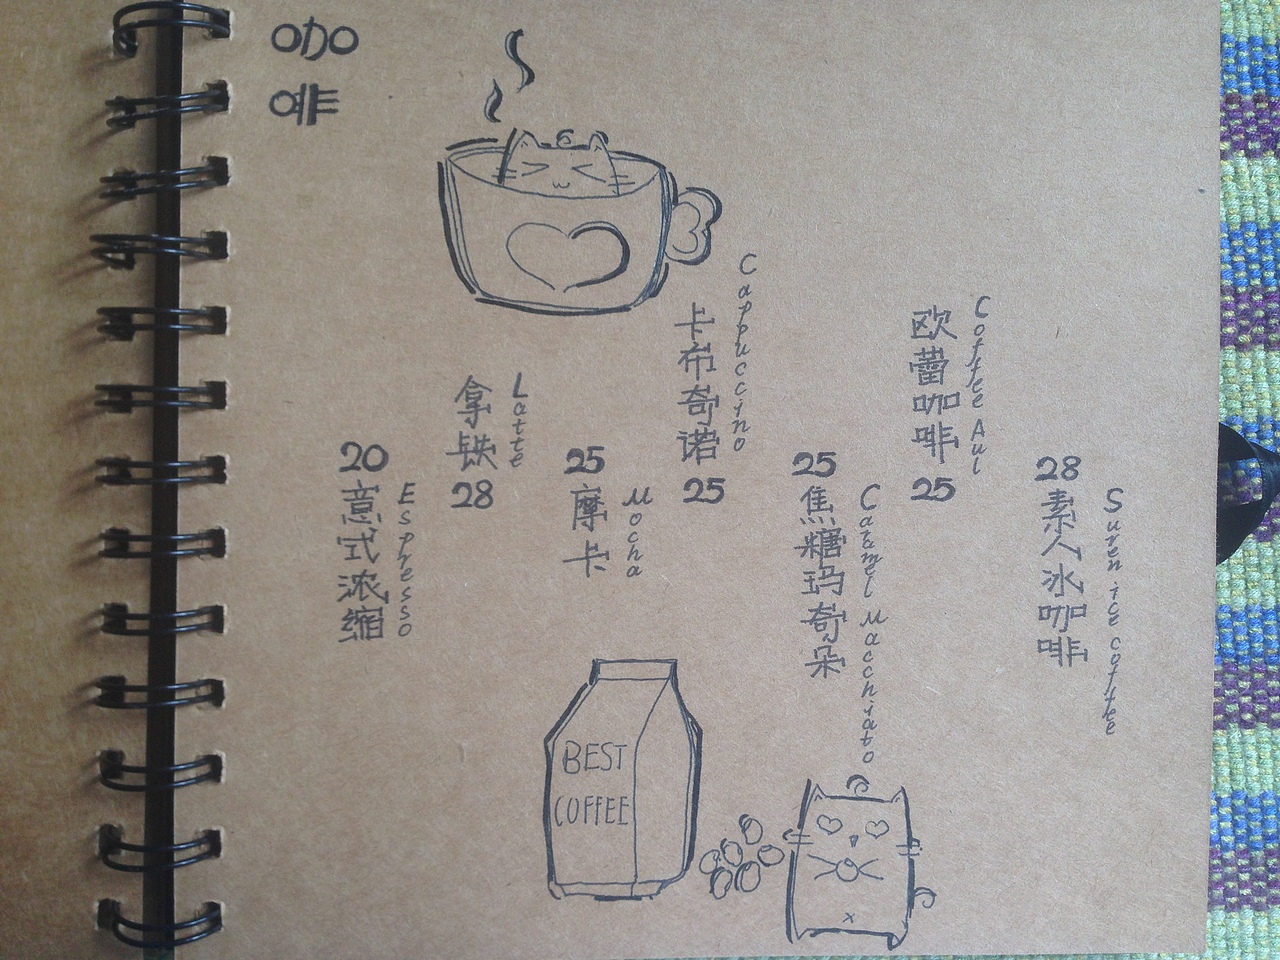 咖
啡
20
意式浓缩
Espresso
拿铁
28
Latte
25
摩卡
Mocha
卡布奇诺
25
Cappuccino
25
焦糖玛奇朵
Caramel Macchiato
欧蕾咖啡
25
Coffee Aul
28
素人冰咖啡
Suren ice coffee
BEST
COFFEE